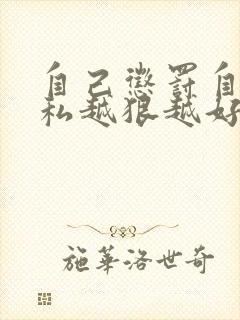 自己惩罚自
私越狠越好
施华洛世奇